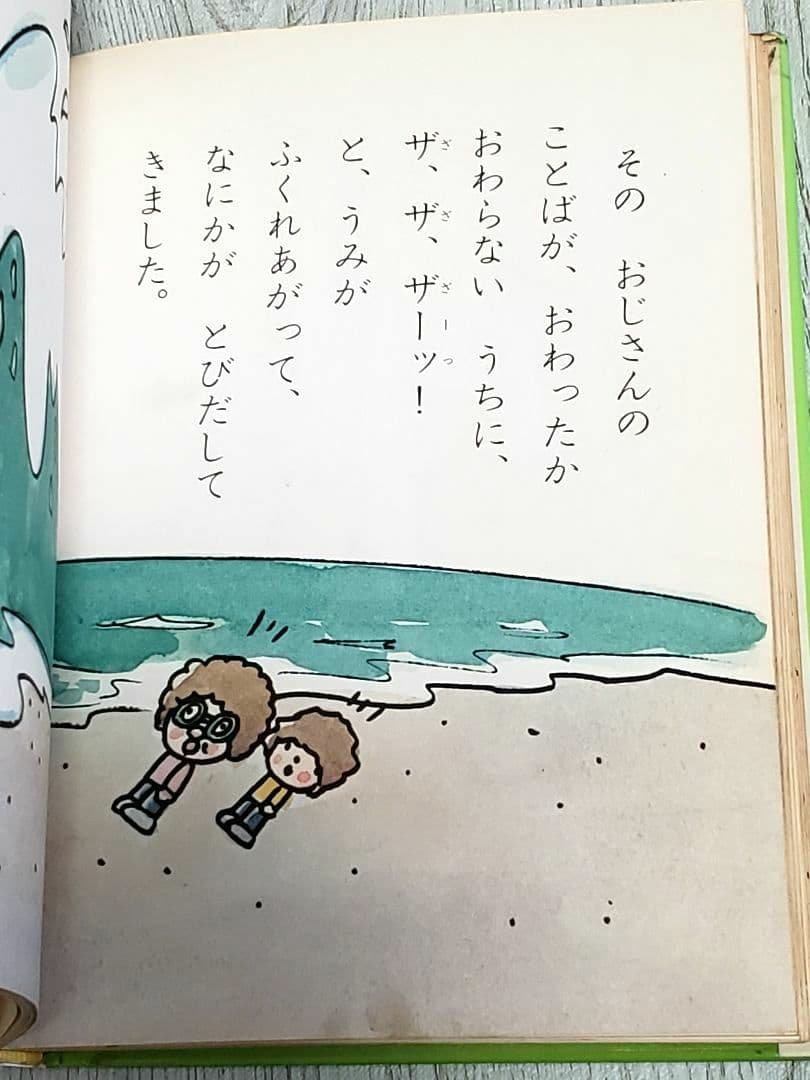 その　おじさんの
ことばが、おわったか
おわらない　うちに、
ザ、ザ、ザーッ！
と、うみが
ふくれあがって、
なにかが　とびだして
きました。